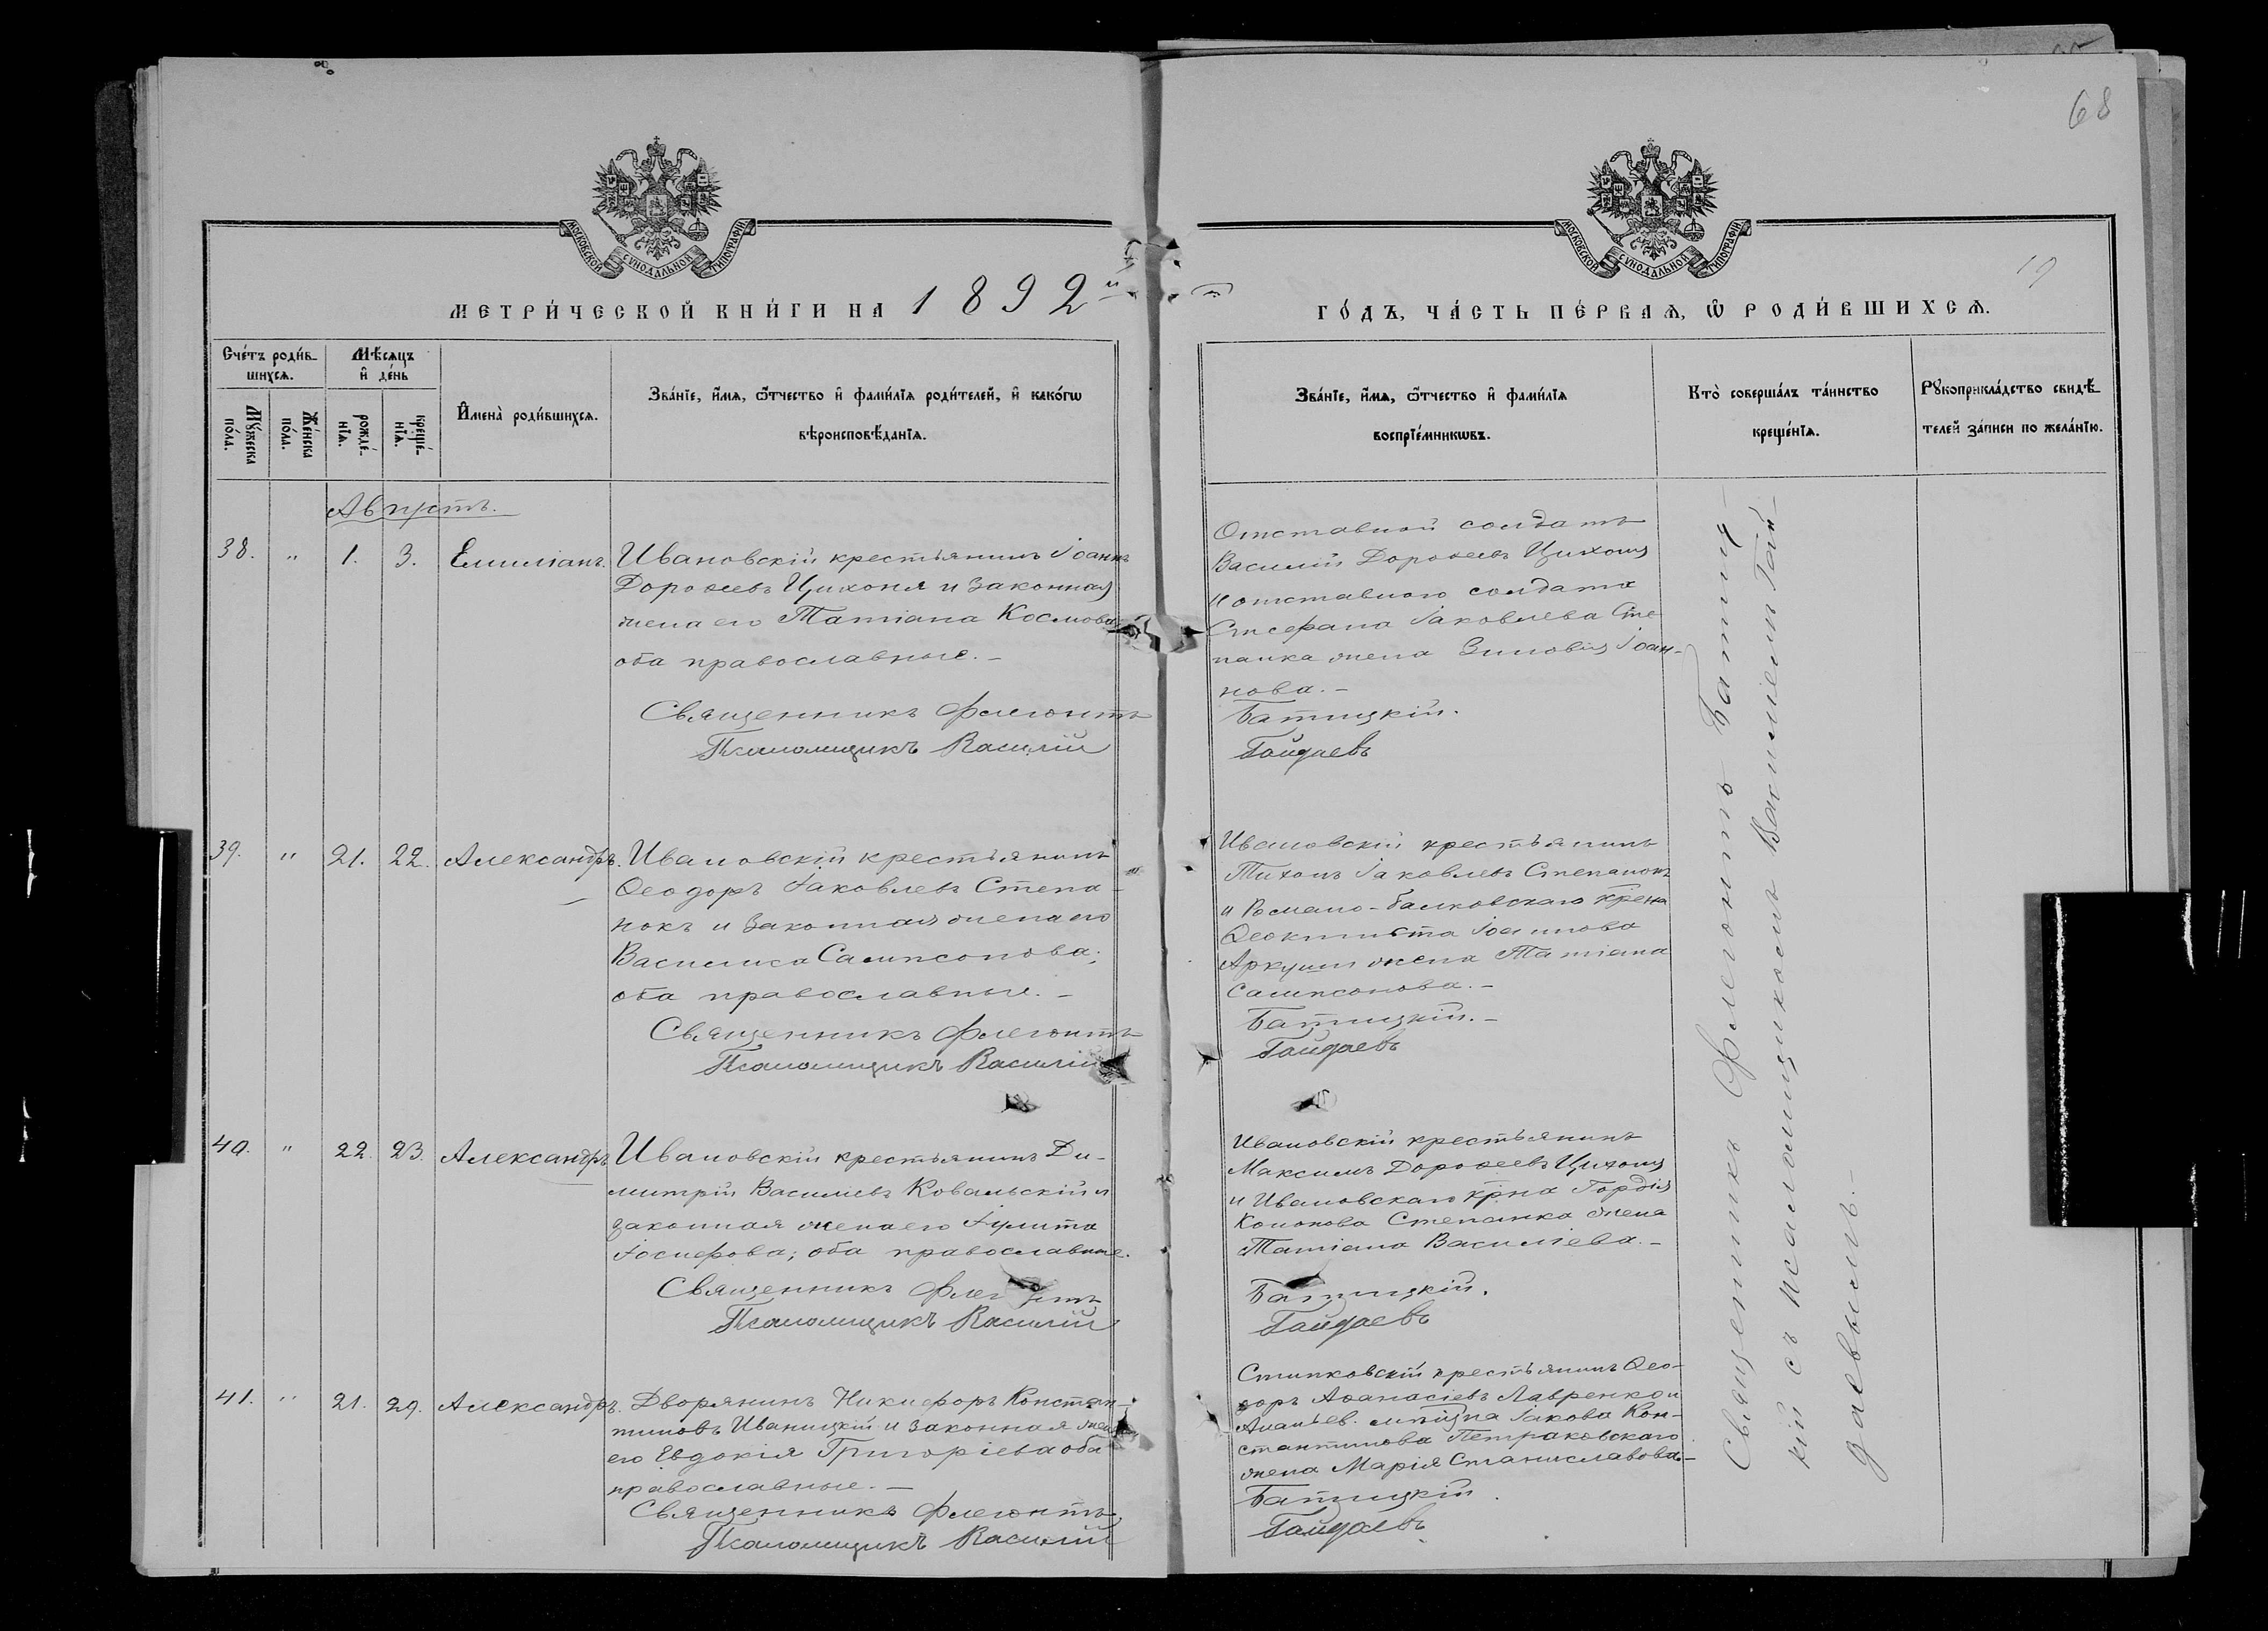 68
МОСКОВСКОЙ СѴНОДАЛЬНОЙ ТИПОГРАФІИ
МОСКОВСКОЙ СѴНОДАЛЬНОЙ ТИПОГРАФІИ
19
МЕТРИ́ЧЕСКОЙ КНИ́ГИ НА 1892й
ГО́ДЪ, ЧА́СТЬ ПЕ́РВАѦ, Ѽ РОДИ́ВШИХСѦ.
Сче́тъ роди́в-
шихсѧ.
Мѣ́сѧцъ
и҆ де́нь
Му́жеска
по́ла.
Же́нска
по́ла.
рожде́-
нїѧ.
креще́-
нїѧ.
И҆мена̀ роди́вшихсѧ.
Зва́нїе, и҆́мѧ, ѻ҆́тчество и҆ фами́лїѧ роди́телей, и҆ како́гѡ
вѣроисповѣ́данїѧ.
Зва́нїе, и҆́мѧ, ѻ҆́тчество и҆ фами́лїѧ
воспрїе́мникѡвъ.
Кто̀ соверша́лъ та́инство
креще́нїѧ.
Рꙋкоприкла́дство свидѣ́-
телей за́писи по жела́нїю.
Августъ.
38. " 1. 3. Емиліанъ.
Ивановскій крестьянинъ Іоаннъ
Дорофеевъ Цихоня и законная
жена его Татіана Космова
оба православные. -
Священникъ Флегонтъ
Псаломщикъ Василій
Отставной солдатъ
Василій Дорофеевъ Цихоня
и отставного солдата
Стефана Іаковлева Сте
панка жена Зиновія Іоан-
нова. -
Батицкій.
Гайдаевъ
39. " 21. 22. Александръ.
Ивановскій крестьянинъ
Ѳеодоръ Іаковлевъ Степа-
нокъ и законная жена его
Василиса Сампсонова;
оба православные. -
Священникъ Флегонтъ
Псаломщикъ Василій
Ивановскій крестьянинъ
Тихонъ Іаковлевъ Степанокъ
и Романо-балковскаго крена
Ѳеоктиста Іоаннова
Аркуши жена Татіана
Сампсонова. -
Батицкій. -
Гайдаевъ
40. " 22. 23. Александръ
Ивановскій крестьянинъ Ди-
митрій Василіевъ Ковальскій и
законная жена его Іулита
Іосифова; оба православные.
Священникъ Флегонтъ
Псаломщикъ Василій
Ивановскій крестьянинъ
Максимъ Дорофеевъ Цихоня
и Ивановскаго крна Гордія
Кононова Степанка жена
Татіана Василіева. -
Батицкій.
Гайдаевъ
41. " 21. 29. Александръ.
Дворянинъ Никифоръ Констан-
тиновъ Иваницкій и законная жена
его Евдокія Григоріева оба
православные. -
Священникъ Флегонтъ
Псаломщикъ Василій
крестьянинъ Ѳео-
доръ Аѳанасіевъ Лавренко и
Ананьев. мѣщна Іакова Кон-
стантинова Петраковскаго
жена Марія Станиславова. -
Батицкій.
Гайдаевъ
Священникъ Флегонтъ Батиц-
кій съ псаломщикомъ Василіемъ Гай-
даевымъ. -